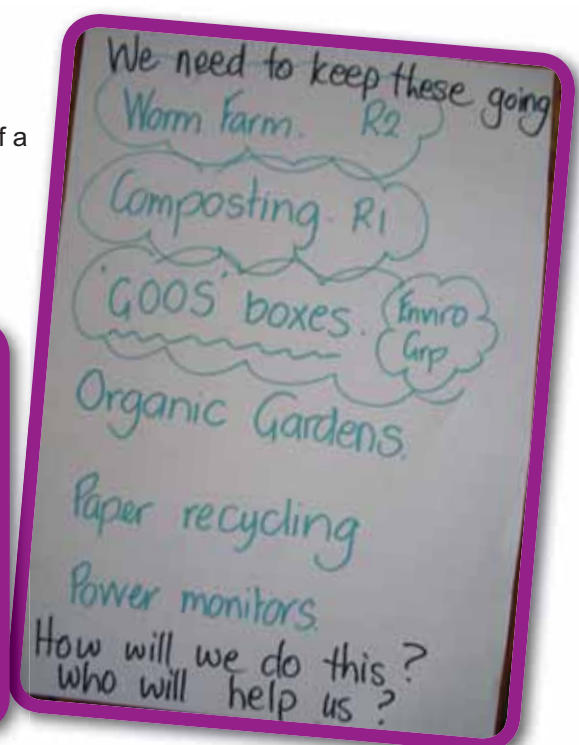 f a
We need to keep these going
Worm Farm. R2
Composting. R1
'GOOS' boxes. Enviro
Grp
Organic Gardens.
Paper recycling
Power monitors.
How will we do this?
who will help us?